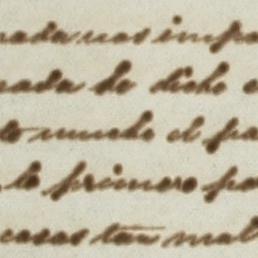 nada nos impo
nada de dicho e
to mucho el pa
lo primero po
cosas tan mal